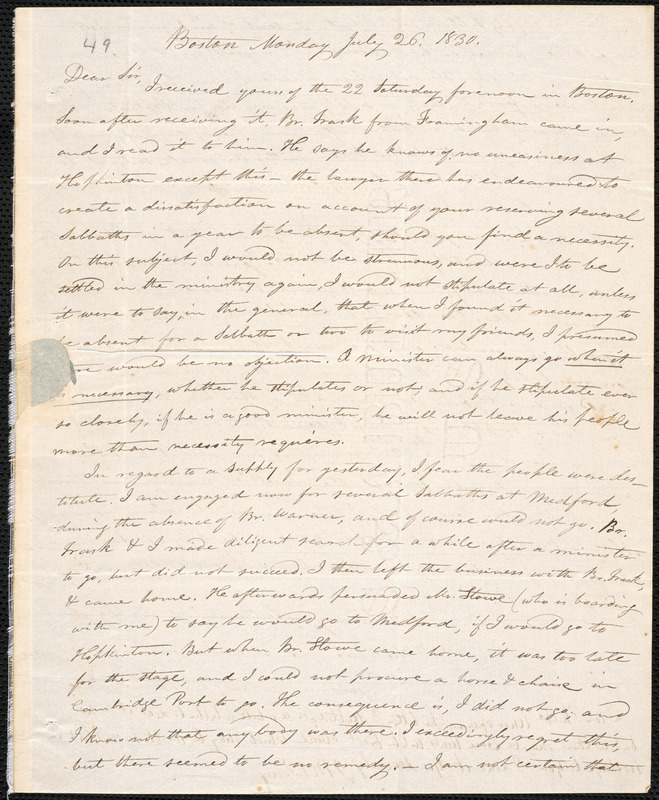 49
Boston Monday July 26. 1830.
Dear Sir,
I received yours of the 22 Saturday forenoon in Boston.
Soon after receiving it, Br. Trask from Framingham came in,
and I read it to him. He says he knows of no uneasiness at
Hopkinton except this – the lawyer there has endeavoured to
create a dissatisfaction on account of your reserving several
Sabbaths in a year to be absent, should you find a necessity.
On this subject, I would not be strenuous, and were I to be
settled in the ministry again, I would not stipulate at all, unless
it were to say, in the general, that when I found it necessary to
be absent for a Sabbath or two to visit my friends, I presumed
would be no objection. A minister can always go when it
is necessary, whether he stipulates or not; and if he stipulate ever
so closely, if he is a good minister, he will not leave his people
more than necessity requires.
In regard to a supply for yesterday, I fear the people were des-
titute. I am engaged now for several Sabbaths at Medford,
during the absence of Br. Warner, and of course could not go. Br.
Trask & I made diligent search for a while after a minister
to go, but did not succeed. I then left the business with Br. Trask,
& came home. He afterwards persuaded Mr. Stowe (who is boarding
with me) to say he would go to Medford, if I would go to
Hopkinton. But when Br. Stowe came home, it was too late
for the stage, and I could not procure a horse & chaise in
Cambridge Port to go. The consequence is, I did not go, and
I know not that any body was there. I exceedingly regret this,
but there seemed to be no remedy. – I am not certain that